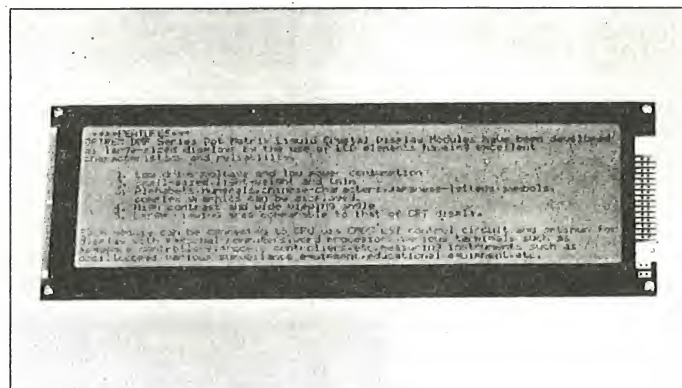 ****FEATURES****
OPTREX DMF Series Dot Matrix Liquid Crystal Display Modules have been developed
as large-sized displays by the use of LCD elements having excellent
characteristics and
1. Low drive voltage and low power
2. Small-sized, light-weight and thin
3. Alphabets, numerals, chinese-characters, Japanese-letters, symbols,
complex graphics can be displayed.
4. High contrast and wide viewing angle
5. Large viewing area comparable to that of CRT display.
Each module can be connected to CPU via CMOS LSI control circuit and optimum for
display with personal computers, word processors, various terminals such as
controllers, measuring instruments such as
various equipment, educational equipment, etc.